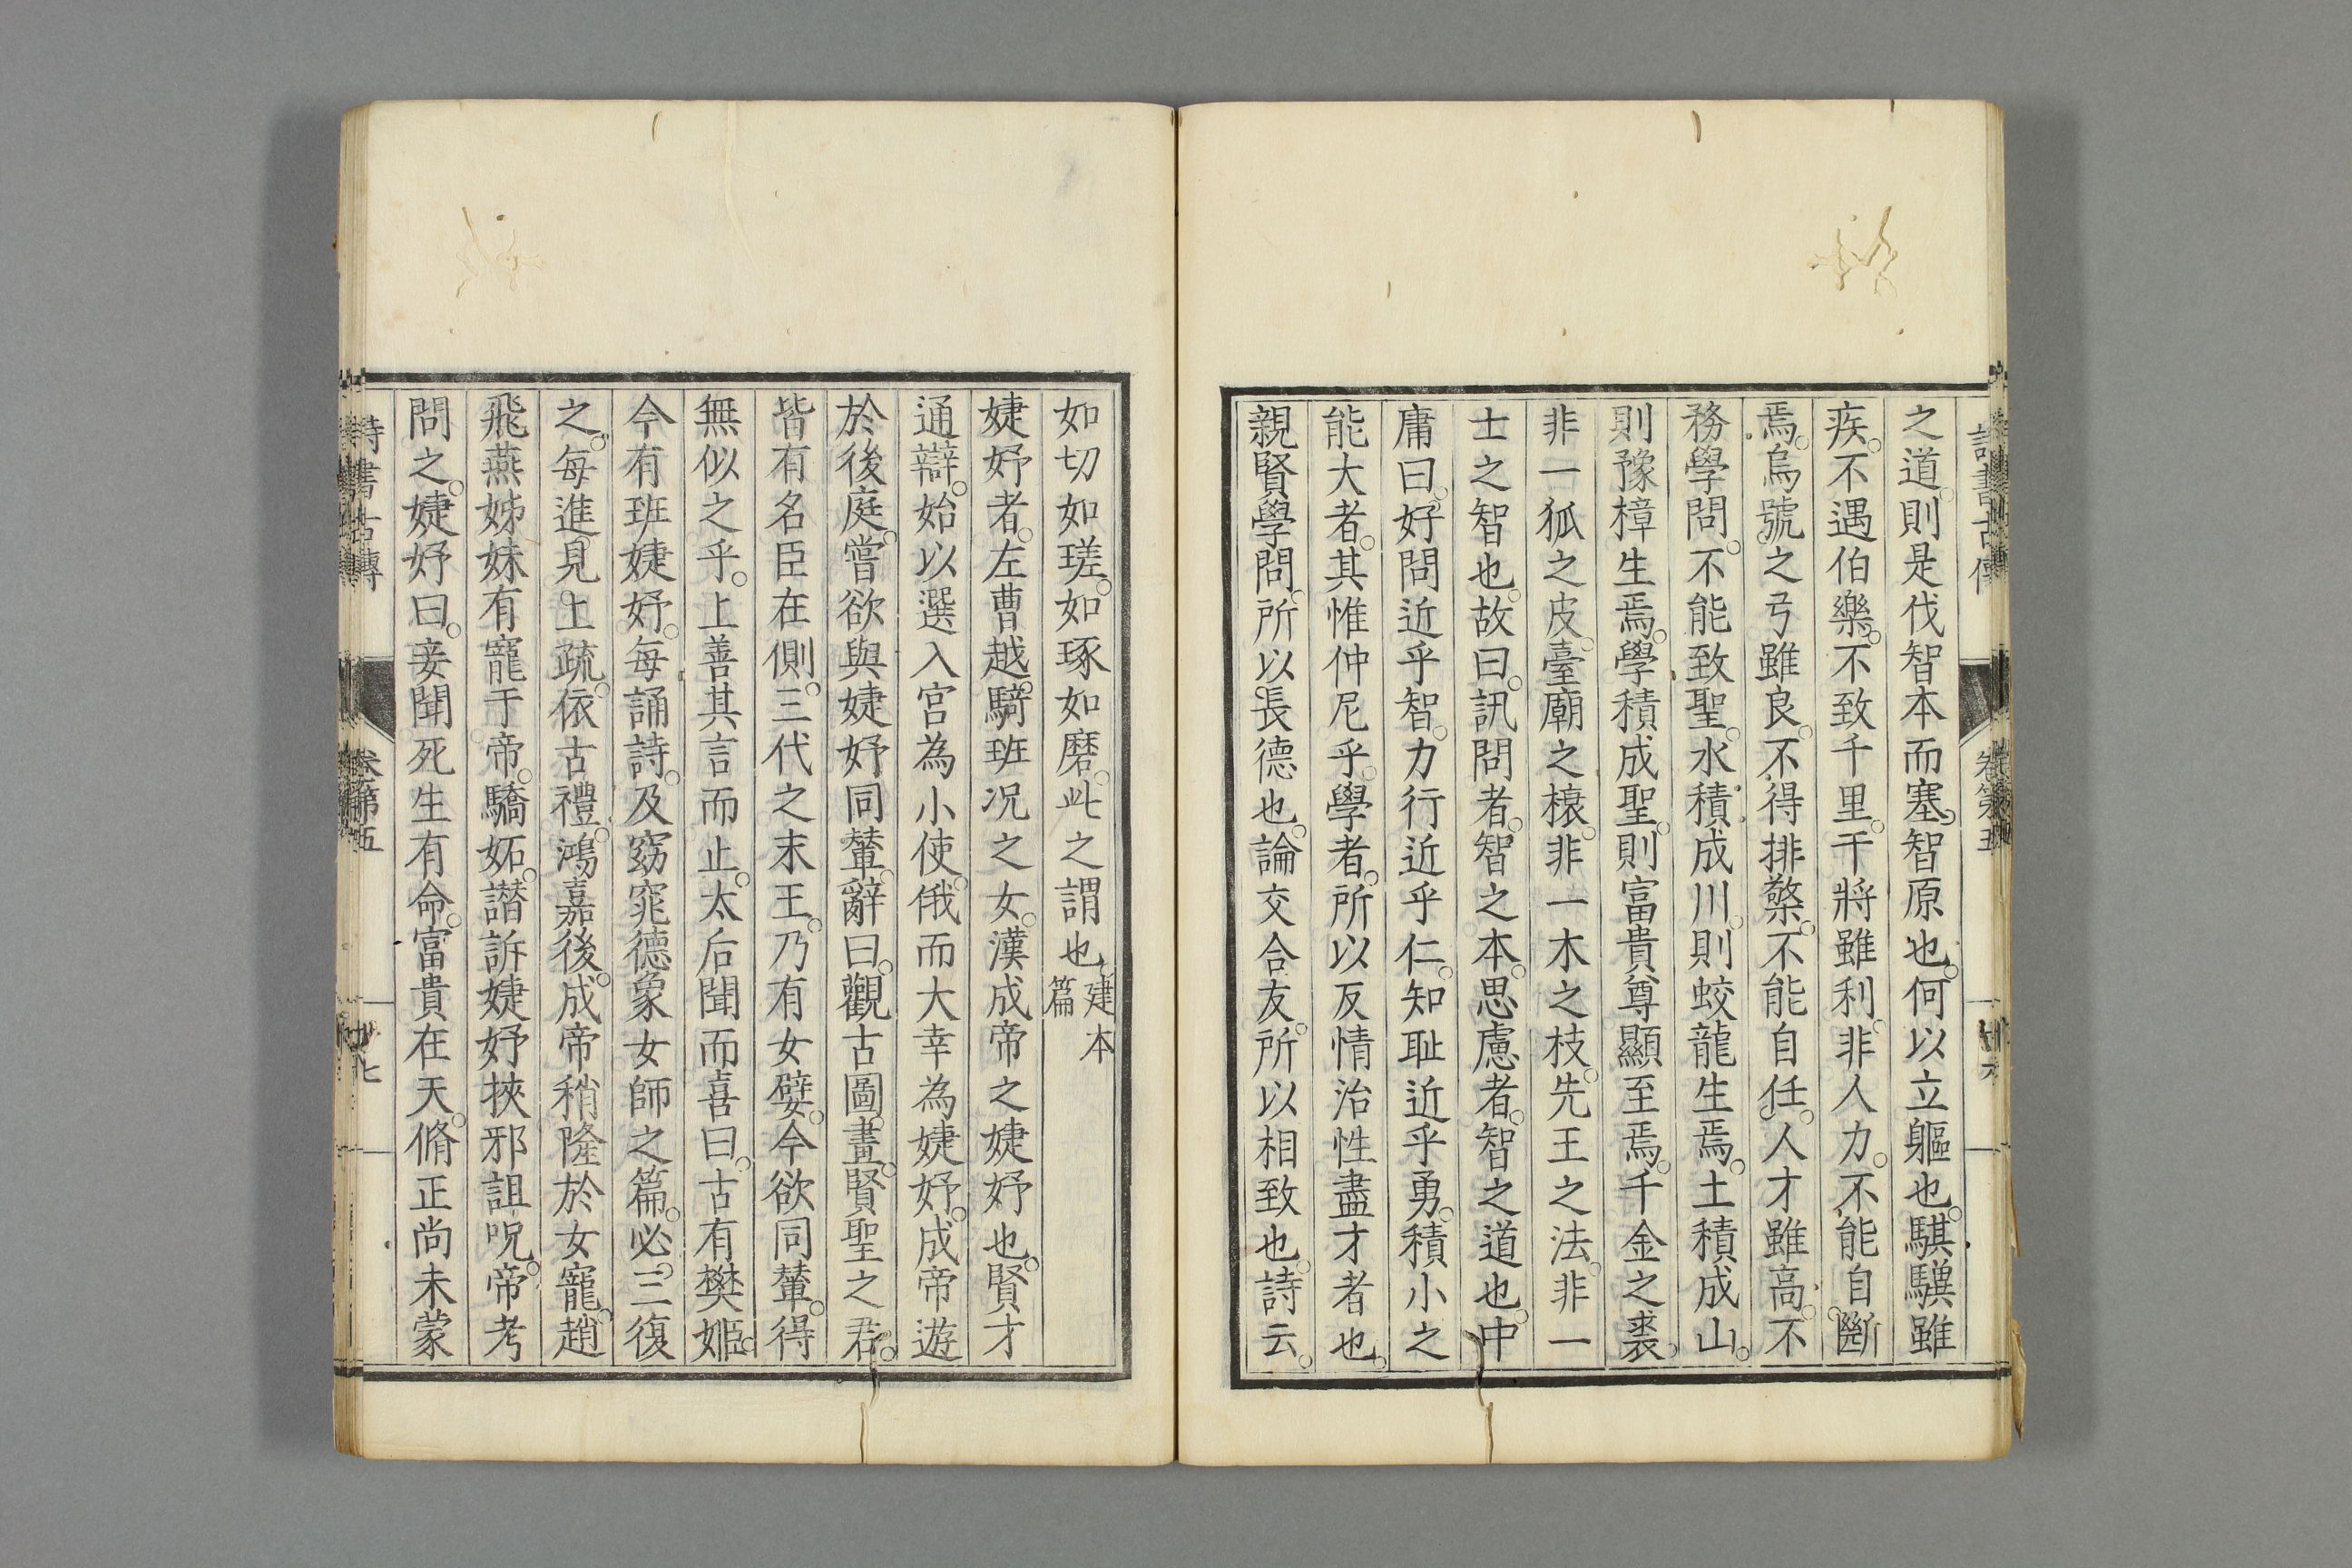 之道則是伐智本而塞智原也何以立軀也騏驥雖
疾不遇伯樂不致千里干將雖利非人力不能自斷
焉烏號之弓雖良不得排檠不能自任人才雖高不
務學問不能致聖水積成川則蛟龍生焉土積成山
則豫樟生焉學積成聖則富貴尊顯至焉千金之裘
非一狐之皮臺廟之榱非一木之枝先王之法非一
士之智也故曰訊問者智之本思慮者智之道也中
庸曰好問近乎智力行近乎仁知耻近乎勇積小之
能大者其惟仲尼乎學者所以反情治性盡才者也
親賢學問所以長德也論交合友所以相致也詩云
如切如瑳如琢如磨此之謂也建本篇
婕妤者左曹越騎班况之女漢成帝之婕妤也賢才
通辯始以選入宮為小使俄而大幸為婕妤成帝遊
於後庭嘗欲與婕妤同輦辭曰觀古圖畫賢聖之君
皆有名臣在側三代之末王乃有女嬖今欲同輦得
無似之乎上善其言而止太后聞而喜曰古有樊姬
今有班婕妤每誦詩及窈窕德象女師之篇必三復
之每進見上疏依古禮鴻嘉後成帝稍隆於女寵趙
飛燕姊妹有寵于帝驕妬譖訴婕妤挾邪詛呪帝考
問之婕妤曰妾聞死生有命富貴在天脩正尚未蒙
詩書古傳
卷第五